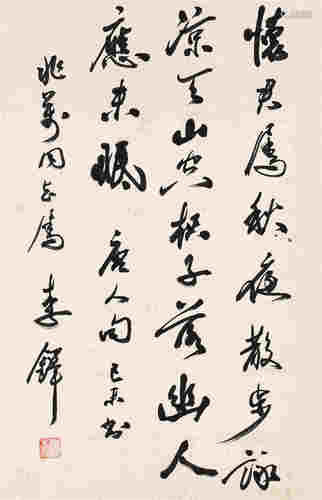 懷君屬秋夜散步詠
涼天山空松子落幽人
應未眠 唐人句 己未書
兆萬同志屬 李鐸